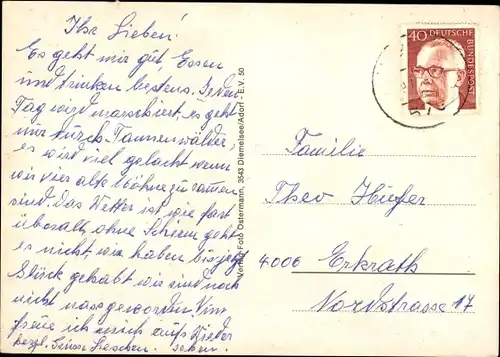 Ihr Lieben!
Es geht mir gut, Essen
und trinken bestens. Jeden
Tag wird marschiert, es geht
nur durch Tannenwälder,
es wird viel gelacht wenn
wir vier alte
sind. Das Wetter ist wie fast
überall, ohne Schirm geht
es nicht, wir haben bis jetzt
Glück gehabt wir sind noch
nicht nass geworden. Nun
freue ich mich aufs Wieder
herzl. Grüsse sehen.
Verlag Foto Ostermann, 3543 Diemelsee/Adorf - E.V. 50
40 DEUTSCHE
BUNDESPOST
Familie
Theo Hüfer
4006 Erkrath
Nordstrasse 17